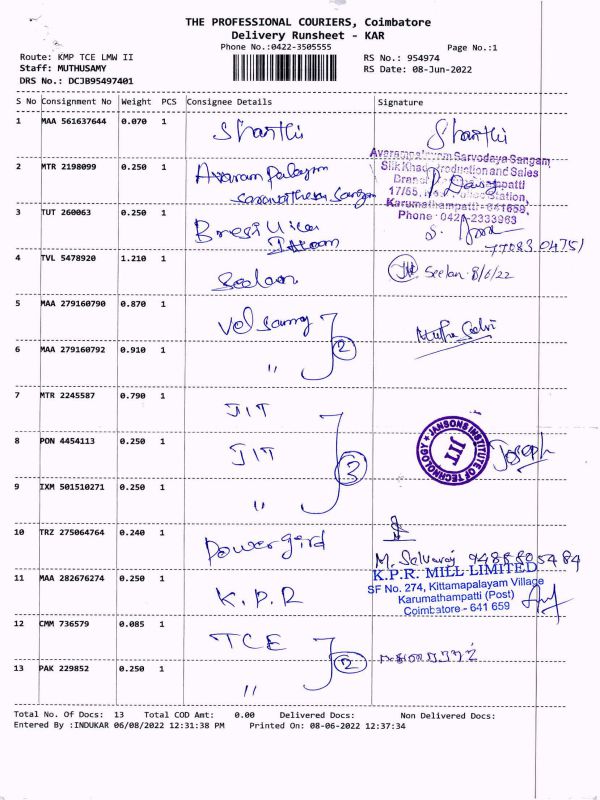 THE PROFESSIONAL COURIERS, Coimbatore
Delivery Runsheet - KAR
Phone No.:0422-3505555 Page No.:1
Route: KMP TCE LMW II RS No.: 954974
Staff: MUTHUSAMY RS Date: 08-Jun-2022
DRS No.: DCJB95497401
S No Consignment No Weight PCS Consignee Details Signature
1 MAA 561637644 0.070 1 Sharthi Sharthi
2 MTR 2198099 0.250 1 Avaram Palayam
Avarampalayam Sarvodaya Sangam
Silk Khadi Production and Sales
Karumathampatti - 641659,
Phone : 0421-2333963
3 TUT 260063 0.250 1
4 TVL 5478920 1.210 1 Seelan Seelan 8/6/22
5 MAA 279160790 0.870 1 Velsamy
6 MAA 279160792 0.910 1 " 2
7 MTR 2245587 0.790 1 JIT
8 PON 4454113 0.250 1 JIT 3 JANSONS INSTITUTE OF TECHNOLOGY JIT Joseph
9 IXM 501510271 0.250 1 "
10 TRZ 275064764 0.240 1 Powergird
M. Selvaraj 9488805484
11 MAA 282676274 0.250 1 K.P.R
K.P.R. MILL LIMITED
SF No. 274, Kittampalayam Village
Karumathampatti (Post)
Coimbatore - 641 659
12 CMM 736579 0.085 1 TCE
13 PAK 229852 0.250 1 " 2
Total No. Of Docs: 13 Total COD Amt: 0.00 Delivered Docs: Non Delivered Docs:
Entered By :INDUKAR 06/08/2022 12:31:38 PM Printed On: 08-06-2022 12:37:34